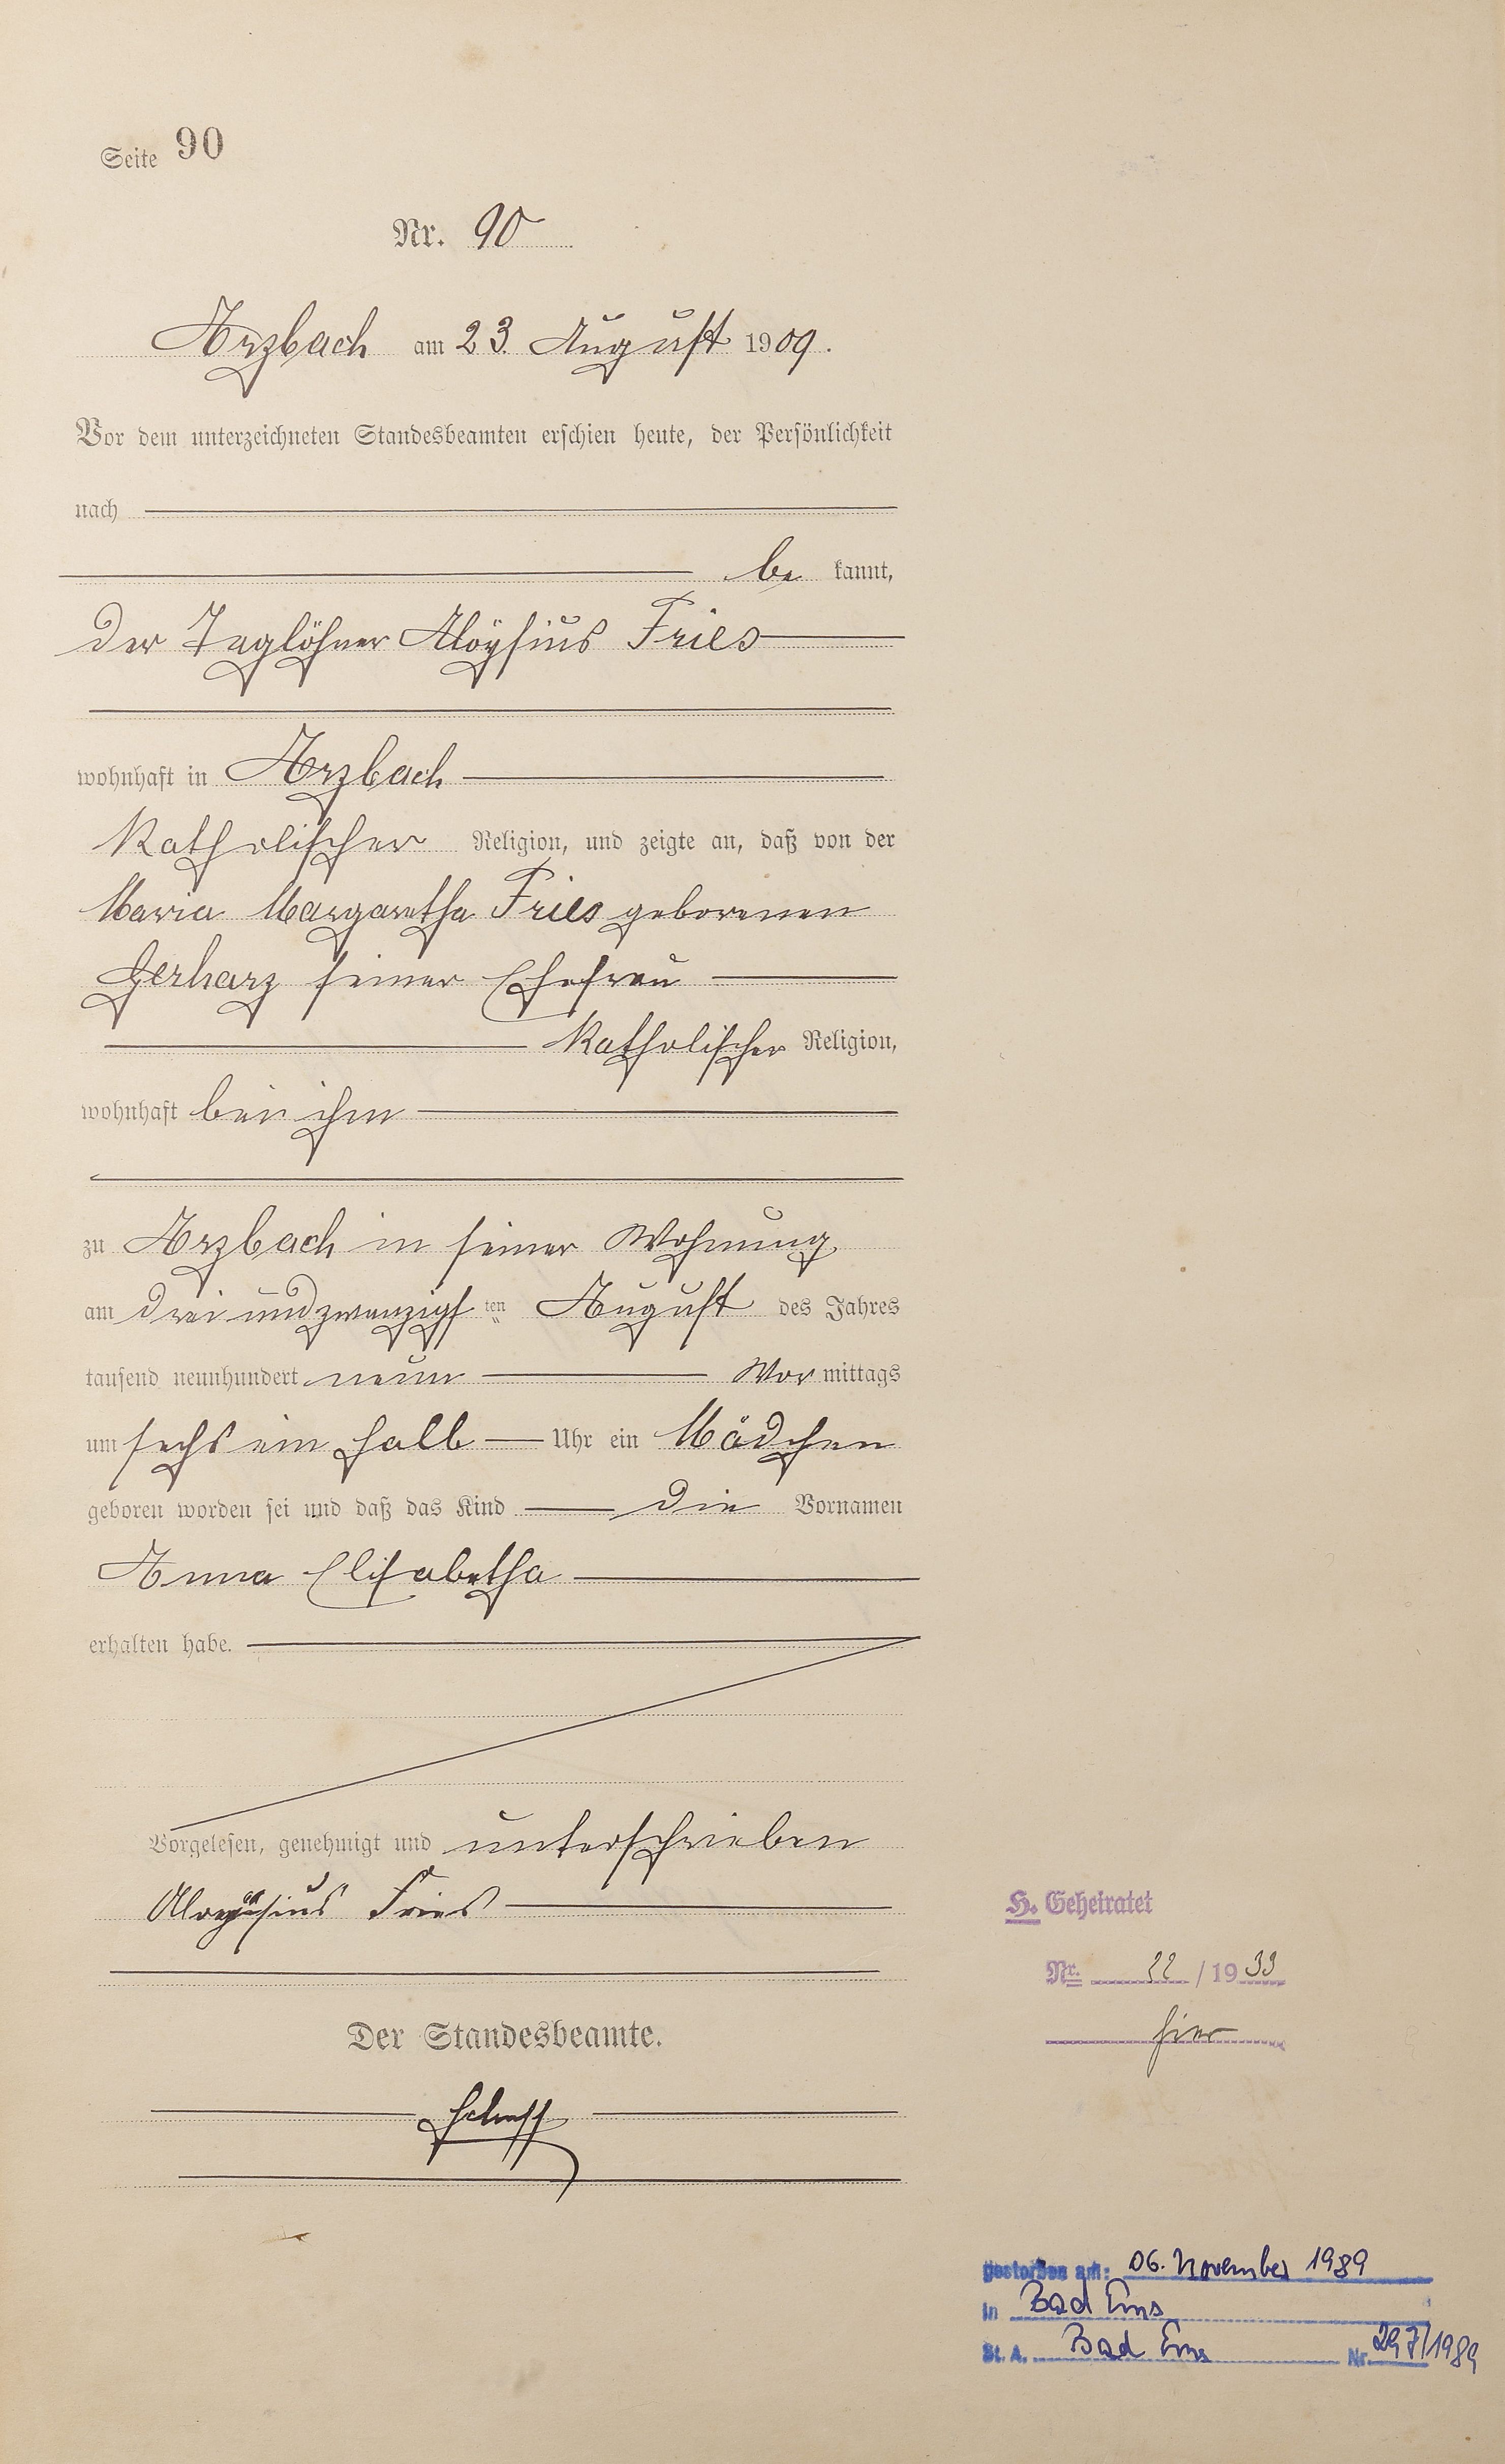 Seite 90
Nr. 90
Arzbach am 23. August 1909.
Vor dem unterzeichneten Standesbeamten erschien heute, der Persönlichkeit
nach
be kannt,
der Taglöhner Aloÿsius Fries
wohnhaft in Arzbach
Katholischer Religion, und zeigte an, daß von der
Maria Margaretha Fries geborenen
Gerharz seiner Ehefrau
Katholischer Religion,
wohnhaft bei ihm
zu Arzbach in seiner Wohnung
am dreiundzwanzigsten August des Jahres
tausend neunhundert neun Vormittags
um sechs ein halb Uhr ein Mädchen
geboren worden sei und daß das Kind die Vornamen
Anna Elisabetha
erhalten habe.
Vorgelesen, genehmigt und unterschrieben
Aloysius Fries
H. Geheiratet
Nr. 22/1933
hier
Der Standesbeamte.
gestorben am: 06. November 1989
in Bad Ems
St. A. Bad Ems Nr. 297/1989